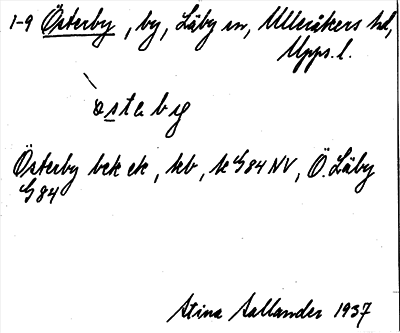 1-9 Österby, by, Läby sn, Ulleråkers hd,
Upps. l.
Österby bek ek, kb, k G 84 NV, Ö. Läby
G 84
Stina Sallander 1937